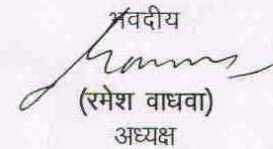 भवदीय
(रमेश वाधवा)
अध्यक्ष